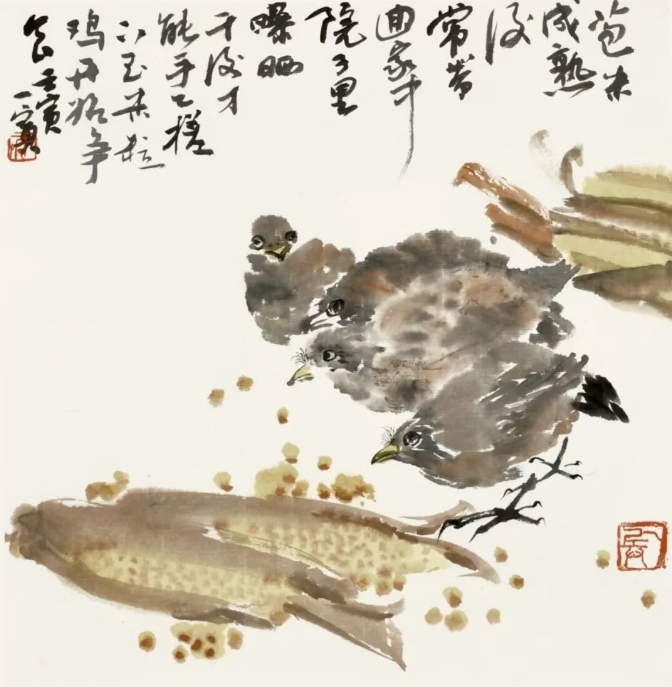 苞米
成熟
後
常带
回家中
院子里
曝晒
干後才
能手工搓
下玉米粒
鸡开始争
食 壬寅